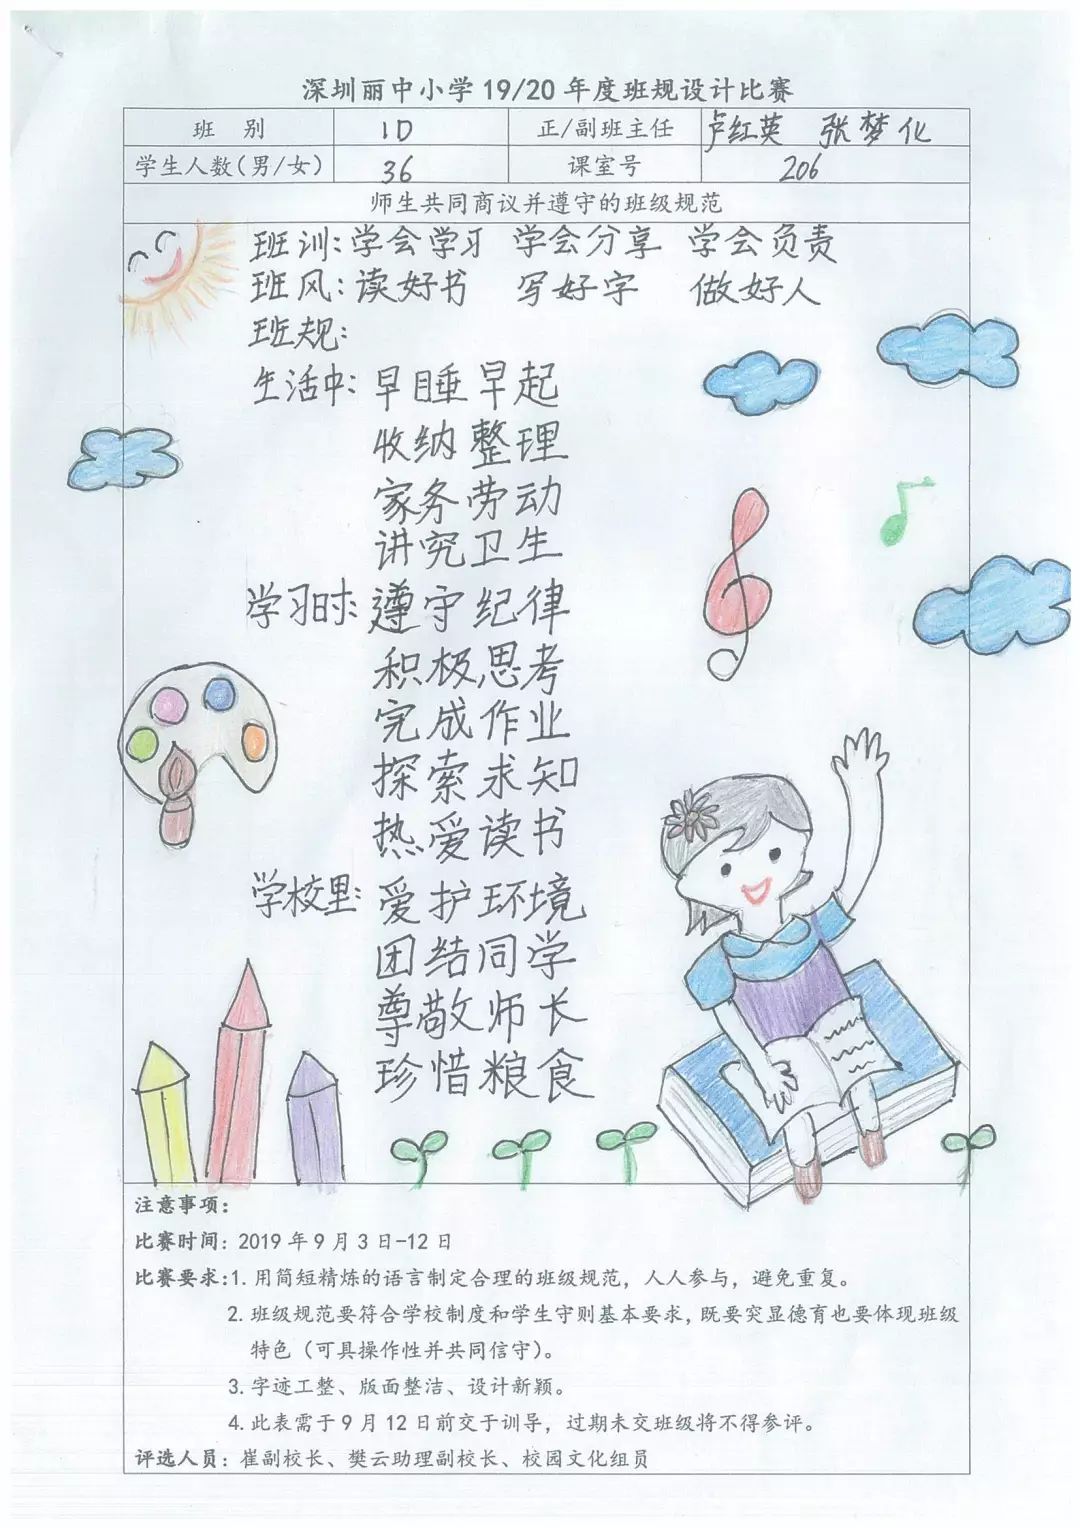 深圳丽中小学19/20年度班规设计比赛
班 别 1D 正/副班主任 卢红英 张梦化
学生人数(男/女) 36 课室号 206
师生共同商议并遵守的班级规范
班训:学会学习 学会分享 学会负责
班风:读好书 写好字 做好人
班规:
生活中:早睡早起
收纳整理
家务劳动
讲究卫生
学习时:遵守纪律
积极思考
完成作业
探索求知
热爱读书
学校里:爱护环境
团结同学
尊敬师长
珍惜粮食
注意事项:
比赛时间:2019年9月3日-12日
比赛要求:1.用简短精炼的语言制定合理的班级规范，人人参与，避免重复。
2.班级规范要符合学校制度和学生守则基本要求,既要突显德育也要体现班级
特色（可具操作性并共同信守）。
3.字迹工整、版面整洁、设计新颖。
4.此表需于9月12日前交于训导，过期未交班级将不得参评。
评选人员：崔副校长、樊云助理副校长、校园文化组员